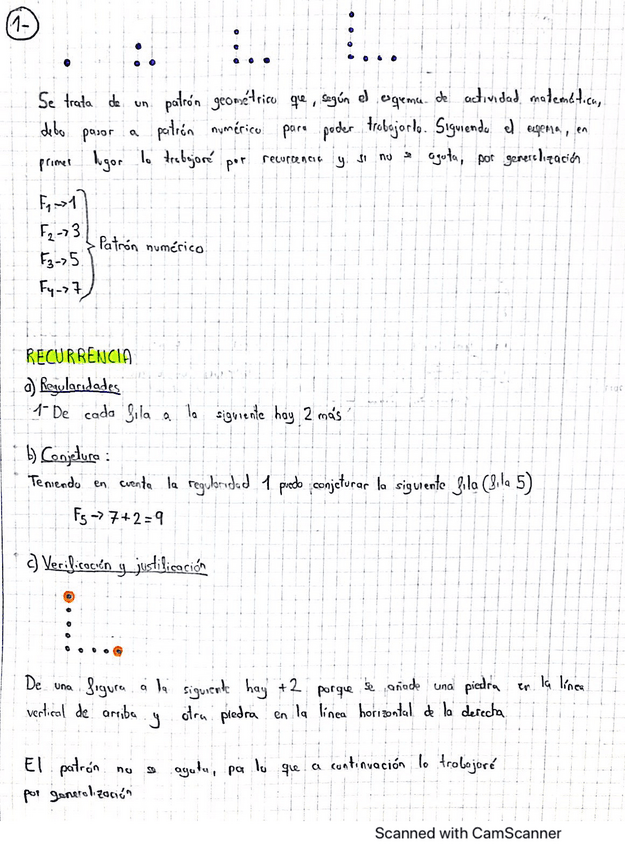 1-
Se trata de un patrón geométrico que, según el esquema de actividad matemática,
debo pasar a patrón numérico para poder trabajarlo. Siguiendo el esquema, en
primer lugar lo trabajaré por recurrencia y si no se agota, por generalización
F1→1
F2→3
F3→5
F4→7
Patrón numérico
RECURRENCIA
a) Regularidades
1- De cada fila a la siguiente hay 2 más
b) Conjetura:
Teniendo en cuenta la regularidad 1 puedo conjeturar la siguiente fila (fila 5)
F5→7+2=9
c) Verificación y justificación
De una figura a la siguiente hay +2 porque se añade una piedra en la línea
vertical de arriba y otra piedra en la línea horizontal de la derecha
El patrón no se agota, por lo que a continuación lo trabajaré
por generalización
Scanned with CamScanner